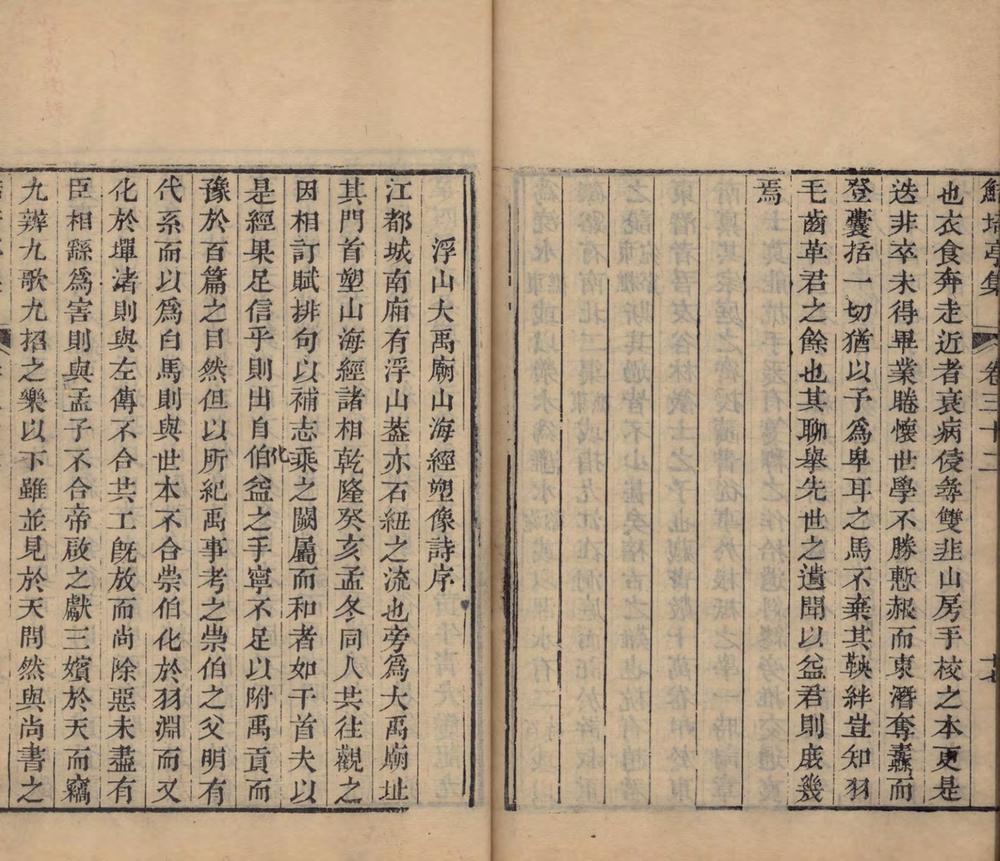 鮚埼亭集 卷三十二 十七
也衣食奔走近者衰病侵尋雙韭山房手校之本更是
迭非卒未得畢業睠懷世學不勝慙赧而東潛奪纛而
登囊括一切猶以予爲卑耳之馬不棄其鞅絆豈知羽
毛齒革君之餘也其聊舉先世之遺聞以益君則庶幾
焉
浮山大禹廟山海經塑像詩序
江都城南廂有浮山葢亦石紐之流也旁爲大禹廟址
其門首塑山海經諸相乾隆癸亥孟冬同人共往觀之
因相訂賦排句以補志乘之闕屬而和者如干首夫以
是經果足信乎則出自伯益之手寧不足以附禹貢而
化
豫於百篇之目然但以所紀禹事考之崇伯之父明有
代系而以爲白馬則與世本不合崇伯化於羽淵而又
化於墠渚則與左傳不合共工旣放而尚除惡未盡有
臣相繇爲害則與孟子不合帝啟之獻三嬪於天而竊
九辨九歌九招之樂以下雖並見於天問然與尚書之